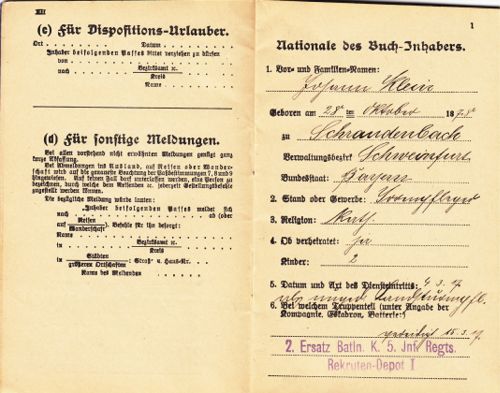 XII
(c) Für Dispositions-Urlauber.
Ort . . . Datum . . .
Inhaber beifolgenden Passes bittet verziehen zu dürfen
von . . . Bezirksamt ic.
nach . . . Kreis
Name . . .
(d) Für sonstige Meldungen.
Bei allen vorstehend nicht erwähnten Meldungen genügt ganz
kurze Abfassung.
Bei Abmeldungen ins Ausland, auf Reisen oder Wander-
schaft wird auf die genaueste Beachtung der Paßbestimmungen 7, 8 und 9
hingewiesen. Auf seinen Fall darf unterlassen werden, eine Person zu
bezeichnen, durch welche dem Abwesenden ic. jederzeit Gestellungsbefehle
zugestellt werden können.
Die bezügliche Meldung würde lauten:
Inhaber beifolgenden Passes meldet sich
nach . . . ab (oder
auf Reisen
Wanderschaft). Befehle für ihn besorgt:
Name . . .
in . . . Bezirksamt ic.
Kreis
in Städten
größeren Ortschaften: Straß- u. Haus-Nr. . .
Name des Meldenden . . .
1
Nationale des Buch-Inhabers.
1. Vor- und Familien-Namen:
Johann Klein
Geboren am 28 ten Oktober 1878
zu Schraudenbach
Verwaltungsbezirk Schweinfurt
Bundesstaat: Bayern
2. Stand oder Gewerbe:
3. Religion: Kath.
4. Ob verheiratet: ja
Kinder: 2
5. Datum und Art des Diensteintritts: 4. 3. 17.
als
6. Bei welchem Truppenteil (unter Angabe der
Kompagnie, Eskadron, Batterie:)
15. 3. 17.
2. Ersatz Batln. K. 5. Inf. Regts.
Rekruten-Depot I